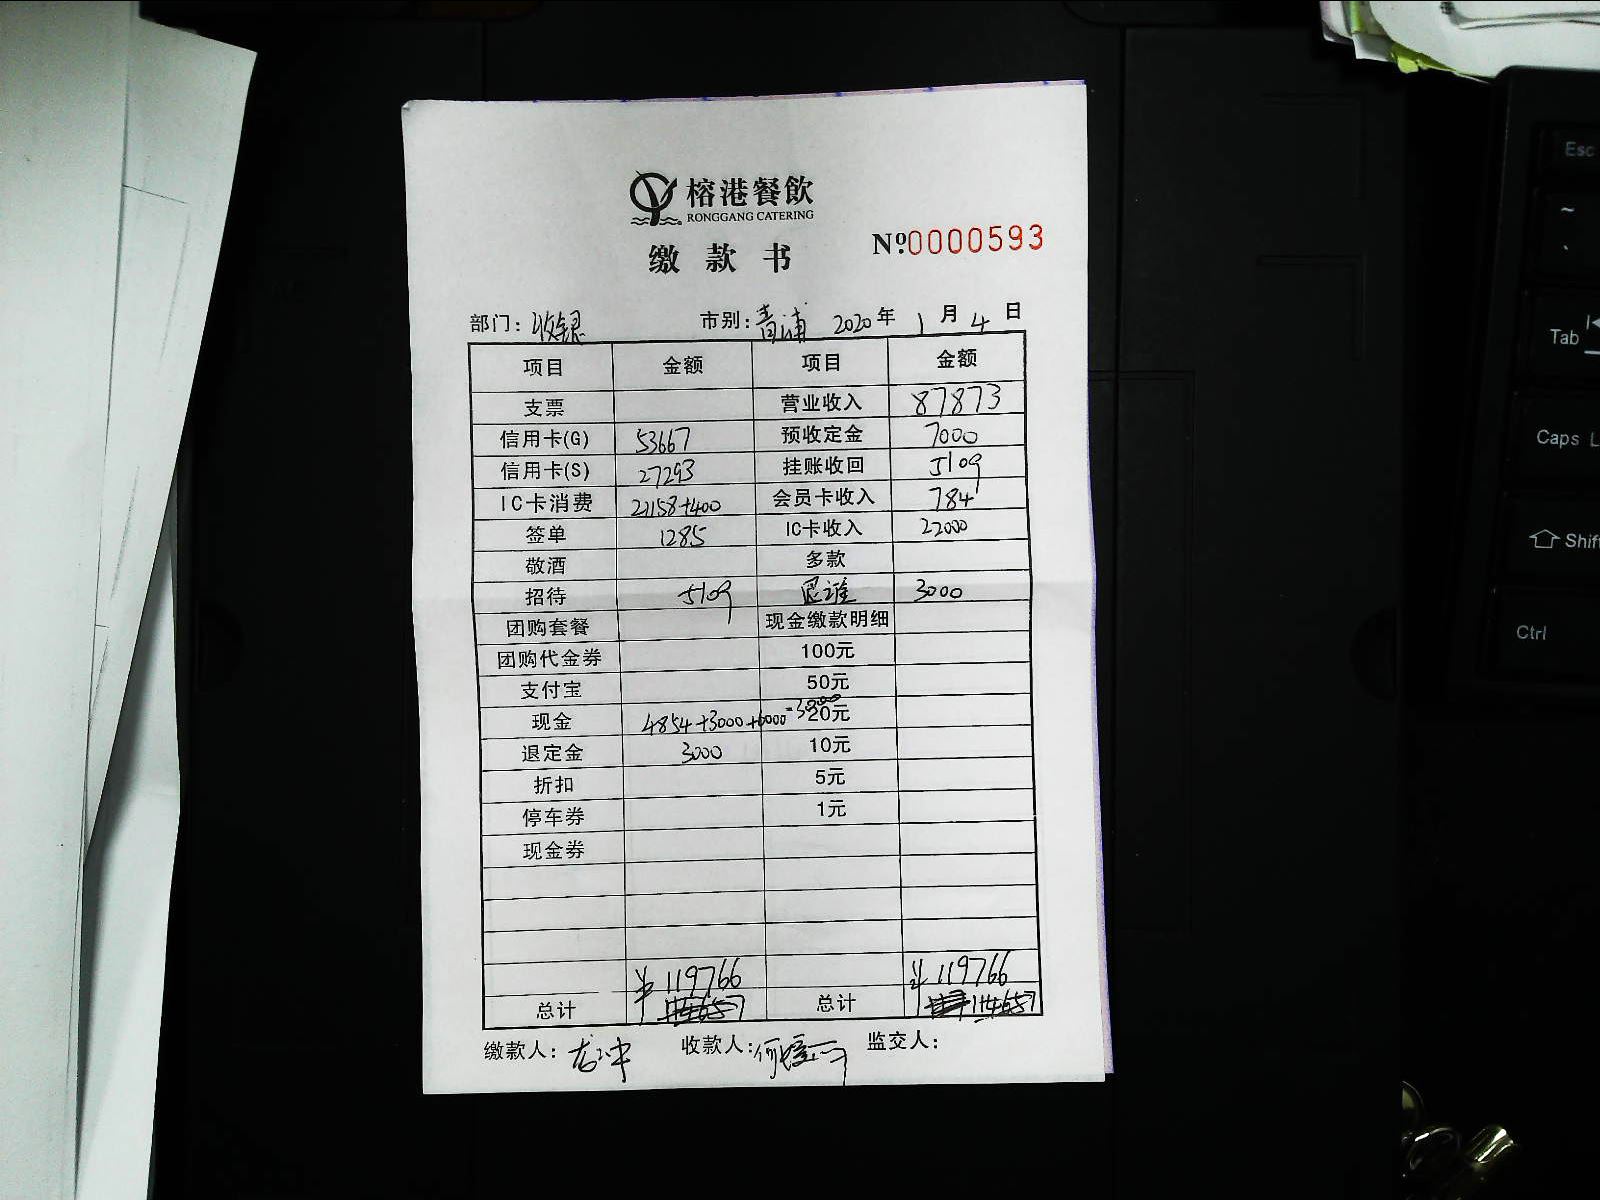 榕港餐飲
RONGGANG CATERING
缴款书
Nº.0000593
部门: 收银 市别: 青浦 2020年 1月 4日
项目 金额 项目 金额
支票 营业收入 87873
信用卡(G) 53667 预收定金 7000
信用卡(S) 27293 挂账收回 5109
IC卡消费 21158+400 会员卡收入 784
签单 1285 IC卡收入 22000
敬酒 多款
招待 5109 3000
团购套餐 现金缴款明细
团购代金券 100元
支付宝 50元
现金 4854+3000+6000 20元
退定金 3000 10元
折扣 5元
停车券 1元
现金券
¥119766 ¥119766
总计 114657 总计 114657
缴款人: 收款人: 监交人:
Esc
~
`
Tab
Caps L
Shift
Ctrl